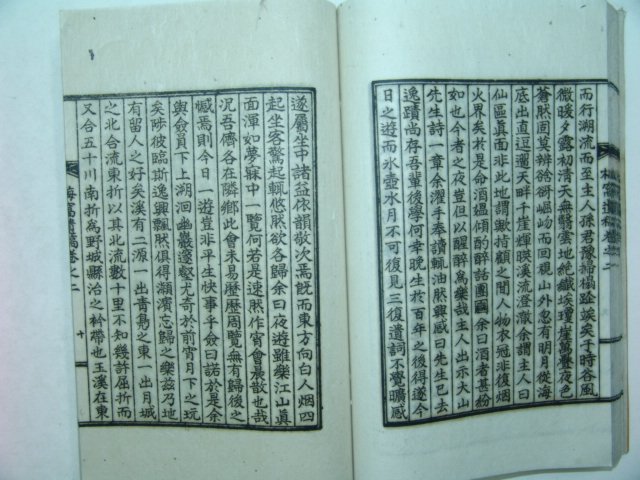 而行溯流而至主人孫君豫掃榻跧竢矣于時谷風
微暖夕露初淸天無翳雲地絶纖埃瓊崖萬疊夜色
蒼然固莫辨谽谺嶇岉而回視山外忽有明月從海
底出直逗遥天畔千崖輝暎溪流澄澈余謂主人曰
仙區眞面非此地謂歟持顧之間人物衣冠非復烟
火界矣於是命酒煴傾酌酔話團圝余曰酒者甚紛
如也今者之夜豈但以醒醉爲樂哉主人出示大山
先生詩一章余濯手奉讀輒油然興感曰先生已去
逸蹟尚存吾輩後學何幸晩生於百年之後得逐今
日之遊而氷壺水月不可復見三復遺詞不覺曠感
遂屬坐中諸益依韻敬次焉旣而東方向白人烟四
起坐客驚起輒悠然欲各歸余曰夜遊雖樂江山眞
面渾如夢寐中一覽何若是速然作宵會晨散也哉
况吾儕各在隣鄕此會未易歷歷周覽無有歸後之
憾焉則今日一遊豈非平生快事乎僉曰諾於是余
與僉員下上溯洄幽巖邃壑尤奇於前宵月下之玩
矣陟彼臨斯逸興飄然俱得瀕濱忘歸之樂玆乃地
有留人之好矣溪有二源一出青鳧之東一出月城
之北合流東折以其北流數十里不知幾許屈折而
又合五十川南折爲野城縣治之衿帶也玉溪在東
海窩遺稿卷之二
十